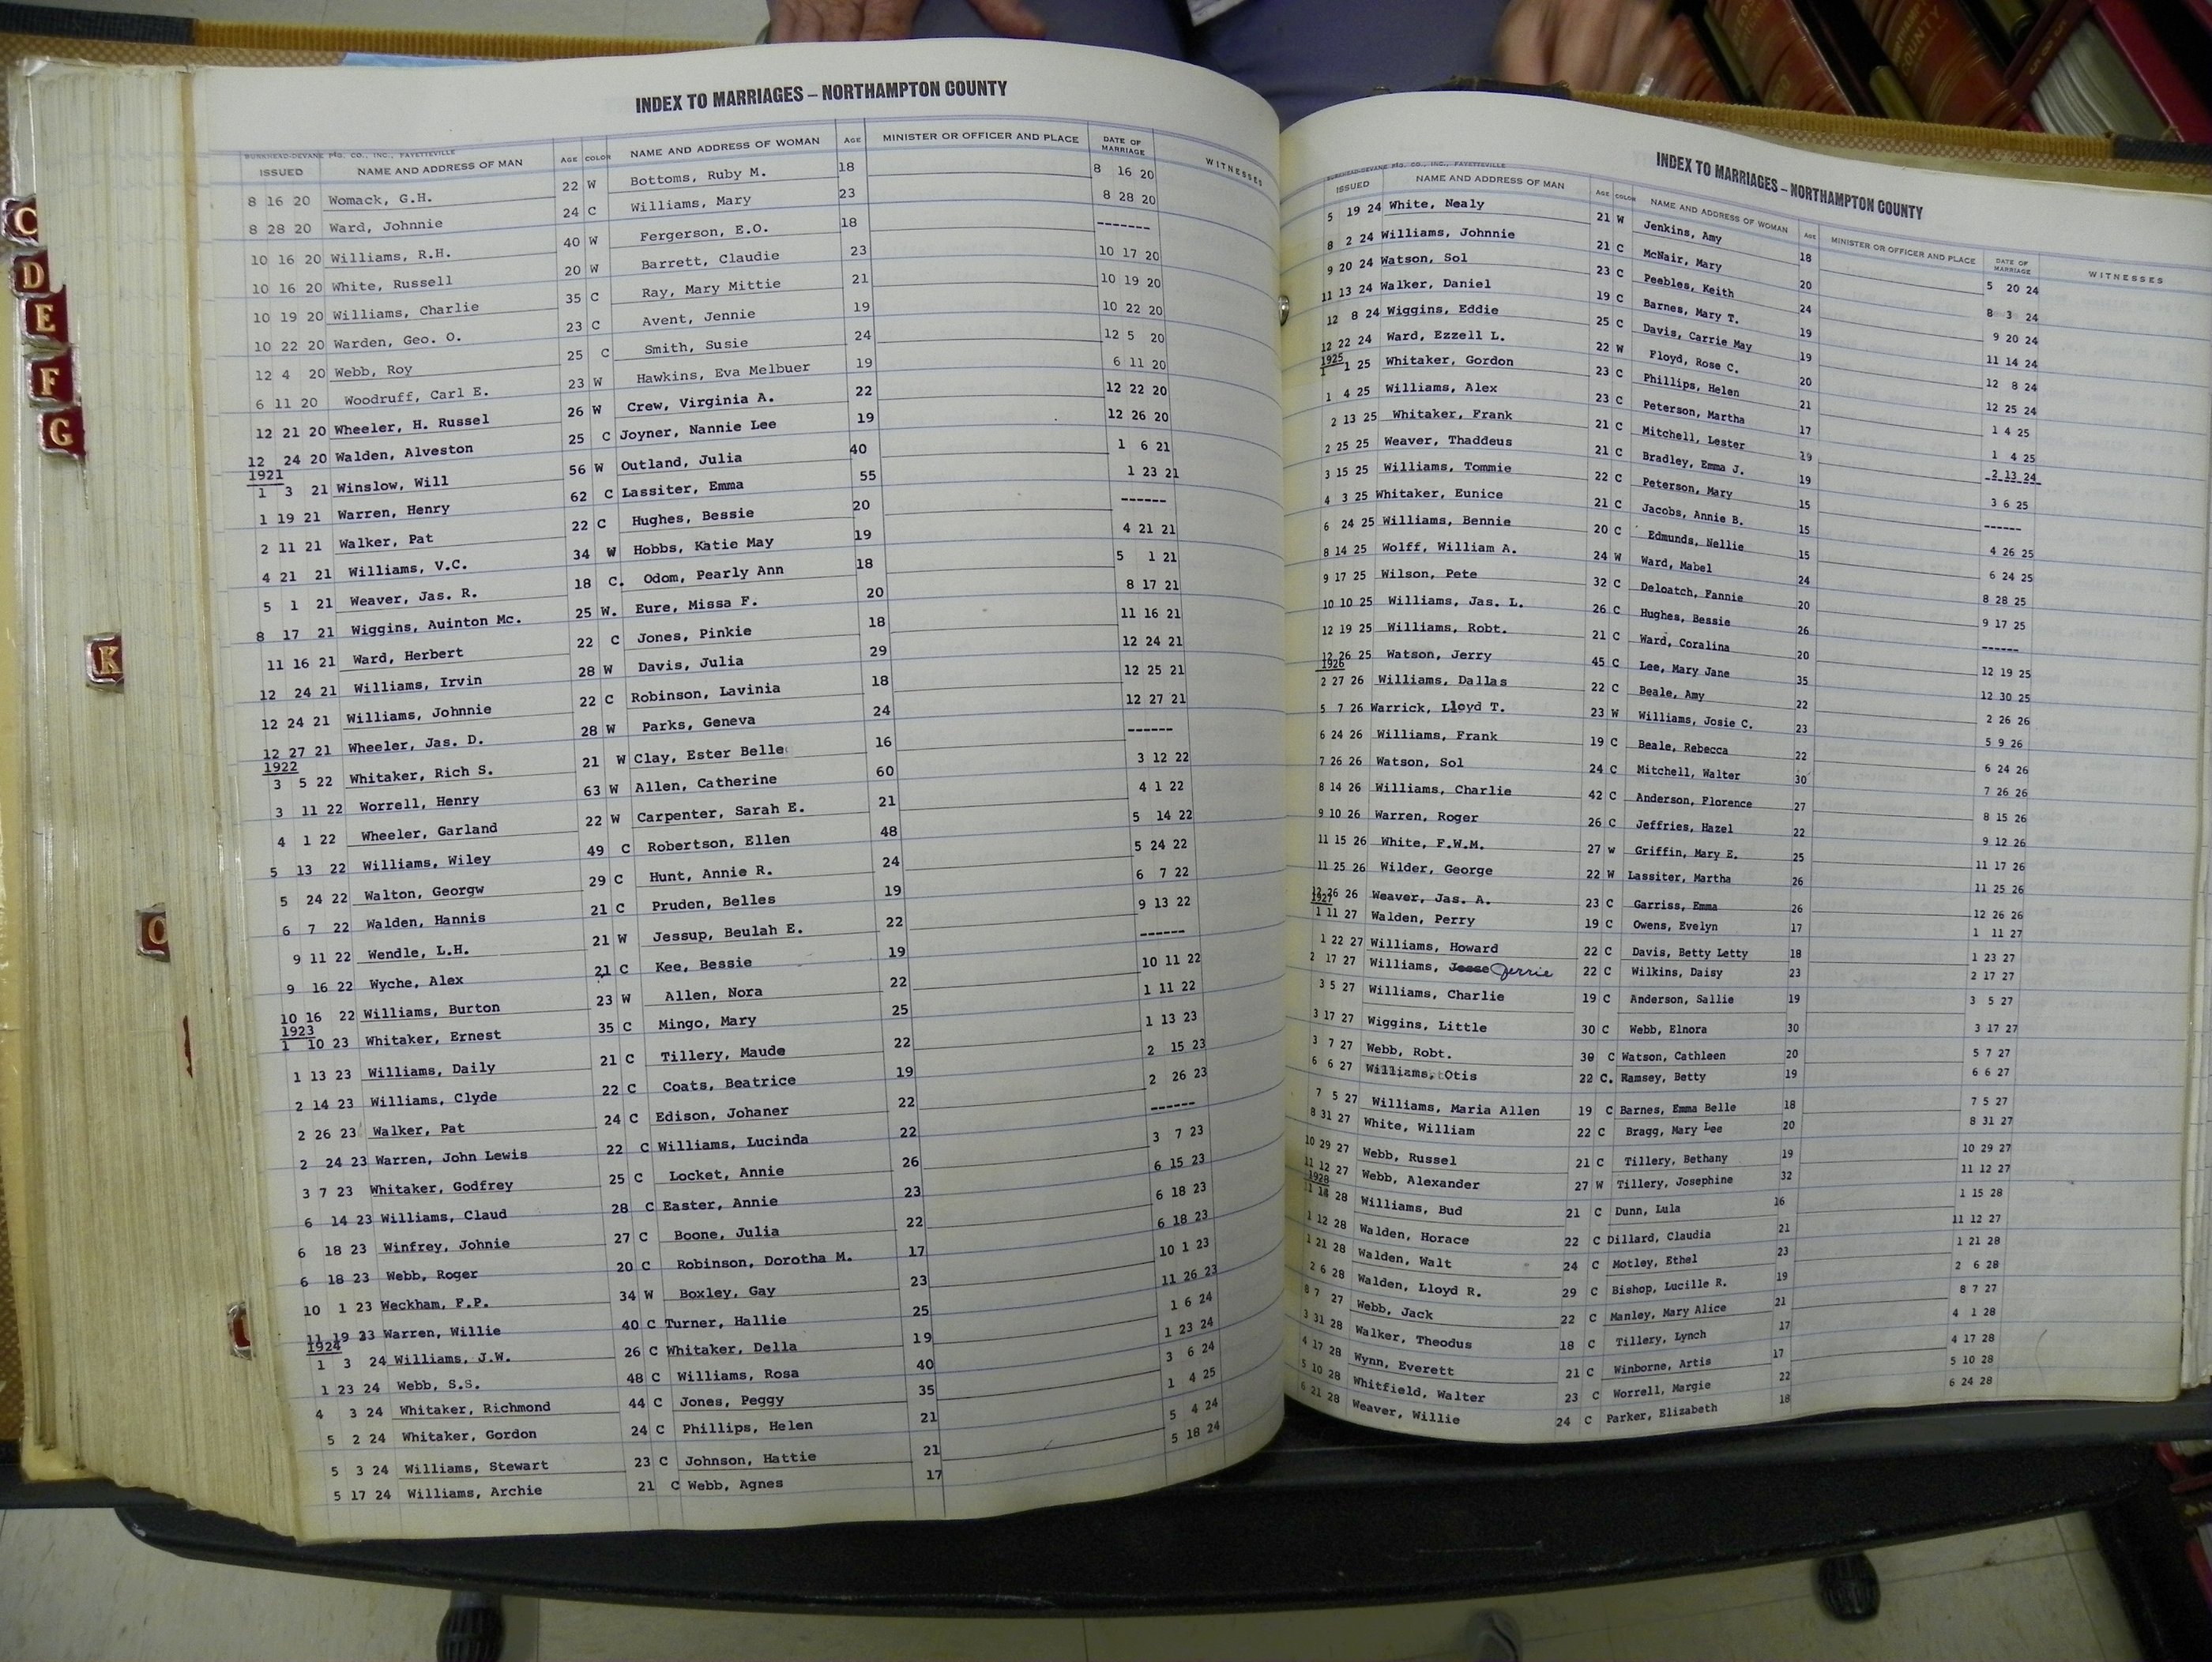 INDEX TO MARRIAGES – NORTHAMPTON COUNTY
BURKHEAD-DEVANE PTG. CO., INC., FAYETTEVILLE
ISSUED NAME AND ADDRESS OF MAN AGE COLOR NAME AND ADDRESS OF WOMAN AGE MINISTER OR OFFICER AND PLACE DATE OF MARRIAGE WITNESSES
8 16 20 Womack, G.H. 22 W Bottoms, Ruby M. 18 8 16 20
8 28 20 Ward, Johnnie 24 C Williams, Mary 23 8 28 20
10 16 20 Williams, R.H. 40 W Fergerson, E.O. 18 -------
10 16 20 White, Russell 20 W Barrett, Claudie 23 10 17 20
10 19 20 Williams, Charlie 35 C Ray, Mary Mittie 21 10 19 20
10 22 20 Warden, Geo. O. 23 C Avent, Jennie 19 10 22 20
12 4 20 Webb, Roy 25 C Smith, Susie 24 12 5 20
6 11 20 Woodruff, Carl E. 23 W Hawkins, Eva Melbuer 19 6 11 20
12 21 20 Wheeler, H. Russel 26 W Crew, Virginia A. 22 12 22 20
12 24 20 Walden, Alveston 25 C Joyner, Nannie Lee 19 12 26 20
1921
1 3 21 Winslow, Will 56 W Outland, Julia 40 1 6 21
1 19 21 Warren, Henry 62 C Lassiter, Emma 55 1 23 21
2 11 21 Walker, Pat 22 C Hughes, Bessie 20 ------
4 21 21 Williams, V.C. 34 W Hobbs, Katie May 19 4 21 21
5 1 21 Weaver, Jas. R. 18 C. Odom, Pearly Ann 18 5 1 21
8 17 21 Wiggins, Auinton Mc. 25 W. Eure, Missa F. 20 8 17 21
11 16 21 Ward, Herbert 22 C Jones, Pinkie 18 11 16 21
12 24 21 Williams, Irvin 28 W Davis, Julia 29 12 24 21
12 24 21 Williams, Johnnie 22 C Robinson, Lavinia 18 12 25 21
12 27 21 Wheeler, Jas. D. 28 W Parks, Geneva 24 12 27 21
1922
3 5 22 Whitaker, Rich S. 21 W Clay, Ester Belle 16 ------
3 11 22 Worrell, Henry 63 W Allen, Catherine 60 3 12 22
4 1 22 Wheeler, Garland 22 W Carpenter, Sarah E. 21 4 1 22
5 13 22 Williams, Wiley 49 C Robertson, Ellen 48 5 14 22
5 24 22 Walton, Georgw 29 C Hunt, Annie R. 24 5 24 22
6 7 22 Walden, Hannis 21 C Pruden, Belles 19 6 7 22
9 11 22 Wendle, L.H. 21 W Jessup, Beulah E. 22 9 13 22
9 16 22 Wyche, Alex 21 C Kee, Bessie 19 ------
10 16 22 Williams, Burton 23 W Allen, Nora 22 10 11 22
1923
1 10 23 Whitaker, Ernest 35 C Mingo, Mary 25 1 11 22
1 13 23 Williams, Daily 21 C Tillery, Maude 22 1 13 23
2 14 23 Williams, Clyde 22 C Coats, Beatrice 19 2 15 23
2 26 23 Walker, Pat 24 C Edison, Johaner 22 2 26 23
2 24 23 Warren, John Lewis 22 C Williams, Lucinda 22 ------
3 7 23 Whitaker, Godfrey 25 C Locket, Annie 26 3 7 23
6 14 23 Williams, Claud 28 C Easter, Annie 23 6 15 23
6 18 23 Winfrey, Johnie 27 C Boone, Julia 22 6 18 23
6 18 23 Webb, Roger 20 C Robinson, Dorotha M. 17 6 18 23
10 1 23 Weckham, F.P. 34 W Boxley, Gay 23 10 1 23
11 19 23 Warren, Willie 40 C Turner, Hallie 25 11 26 23
1924
1 3 24 Williams, J.W. 26 C Whitaker, Della 19 1 6 24
1 23 24 Webb, S.S. 48 C Williams, Rosa 40 1 23 24
4 3 24 Whitaker, Richmond 44 C Jones, Peggy 35 3 6 24
5 2 24 Whitaker, Gordon 24 C Phillips, Helen 21 1 4 25
5 3 24 Williams, Stewart 23 C Johnson, Hattie 21 5 4 24
5 17 24 Williams, Archie 21 C Webb, Agnes 17 5 18 24
INDEX TO MARRIAGES – NORTHAMPTON COUNTY
BURKHEAD-DEVANE PTG. CO., INC., FAYETTEVILLE
ISSUED NAME AND ADDRESS OF MAN AGE COLOR NAME AND ADDRESS OF WOMAN AGE MINISTER OR OFFICER AND PLACE DATE OF MARRIAGE WITNESSES
5 19 24 White, Nealy 21 W Jenkins, Amy 18 5 20 24
8 2 24 Williams, Johnnie 21 C McNair, Mary 20 8 3 24
9 20 24 Watson, Sol 23 C Peebles, Keith 24 9 20 24
11 13 24 Walker, Daniel 19 C Barnes, Mary T. 19 11 14 24
12 8 24 Wiggins, Eddie 25 C Davis, Carrie May 19 12 8 24
12 22 24 Ward, Ezzell L. 22 W Floyd, Rose C. 20 12 25 24
1925
1 1 25 Whitaker, Gordon 23 C Phillips, Helen 21 1 4 25
1 4 25 Williams, Alex 23 C Peterson, Martha 17 1 4 25
2 13 25 Whitaker, Frank 21 C Mitchell, Lester 19 2 13 24
2 25 25 Weaver, Thaddeus 21 C Bradley, Emma J. 19 3 6 25
3 15 25 Williams, Tommie 22 C Peterson, Mary 15 ------
4 3 25 Whitaker, Eunice 21 C Jacobs, Annie B. 15 4 26 25
6 24 25 Williams, Bennie 20 C Edmunds, Nellie 15 6 24 25
8 14 25 Wolff, William A. 24 W Ward, Mabel 24 8 28 25
9 17 25 Wilson, Pete 32 C Deloatch, Fannie 20 9 17 25
10 10 25 Williams, Jas. L. 26 C Hughes, Bessie 26 ------
12 19 25 Williams, Robt. 21 C Ward, Coralina 20 12 19 25
12 26 25 Watson, Jerry 45 C Lee, Mary Jane 35 12 30 25
1926
2 27 26 Williams, Dallas 22 C Beale, Amy 22 2 26 26
5 7 26 Warrick, Lloyd T. 23 W Williams, Josie C. 23 5 9 26
6 24 26 Williams, Frank 19 C Beale, Rebecca 22 6 24 26
7 26 26 Watson, Sol 24 C Mitchell, Walter 30 7 26 26
8 14 26 Williams, Charlie 42 C Anderson, Florence 27 8 15 26
9 10 26 Warren, Roger 26 C Jeffries, Hazel 22 9 12 26
11 15 26 White, F.W.M. 27 W Griffin, Mary E. 25 11 17 26
11 25 26 Wilder, George 22 W Lassiter, Martha 26 11 25 26
12 26 26 Weaver, Jas. A. 23 C Garriss, Emma 26 12 26 26
1927
1 11 27 Walden, Perry 19 C Owens, Evelyn 17 1 11 27
1 22 27 Williams, Howard 22 C Davis, Betty Letty 18 1 23 27
2 17 27 Williams, Jesse Jerrie 22 C Wilkins, Daisy 23 2 17 27
3 5 27 Williams, Charlie 19 C Anderson, Sallie 19 3 5 27
3 17 27 Wiggins, Little 30 C Webb, Elnora 30 3 17 27
3 7 27 Webb, Robt. 30 C Watson, Cathleen 20 5 7 27
6 6 27 Williams, Otis 22 C. Ramsey, Betty 19 6 6 27
7 5 27 Williams, Maria Allen 19 C Barnes, Emma Belle 18 7 5 27
8 31 27 White, William 22 C Bragg, Mary Lee 20 8 31 27
10 29 27 Webb, Russel 21 C Tillery, Bethany 19 10 29 27
11 12 27 Webb, Alexander 27 W Tillery, Josephine 32 11 12 27
1928
28 Williams, Bud 21 C Dunn, Lula 16 1 15 28
1 12 28 Walden, Horace 22 C Dillard, Claudia 21 11 12 27
1 21 28 Walden, Walt 24 C Motley, Ethel 23 1 21 28
2 6 28 Walden, Lloyd R. 29 C Bishop, Lucille R. 19 2 6 28
8 7 27 Webb, Jack 22 C Manley, Mary Alice 21 8 7 27
3 31 28 Walker, Theodus 18 C Tillery, Lynch 17 4 1 28
4 17 28 Wynn, Everett 21 C Winborne, Artis 17 4 17 28
5 10 28 Whitfield, Walter 23 C Worrell, Margie 22 5 10 28
6 21 28 Weaver, Willie 24 C Parker, Elizabeth 18 6 24 28
C
D
E
F
G
K
COUNTY